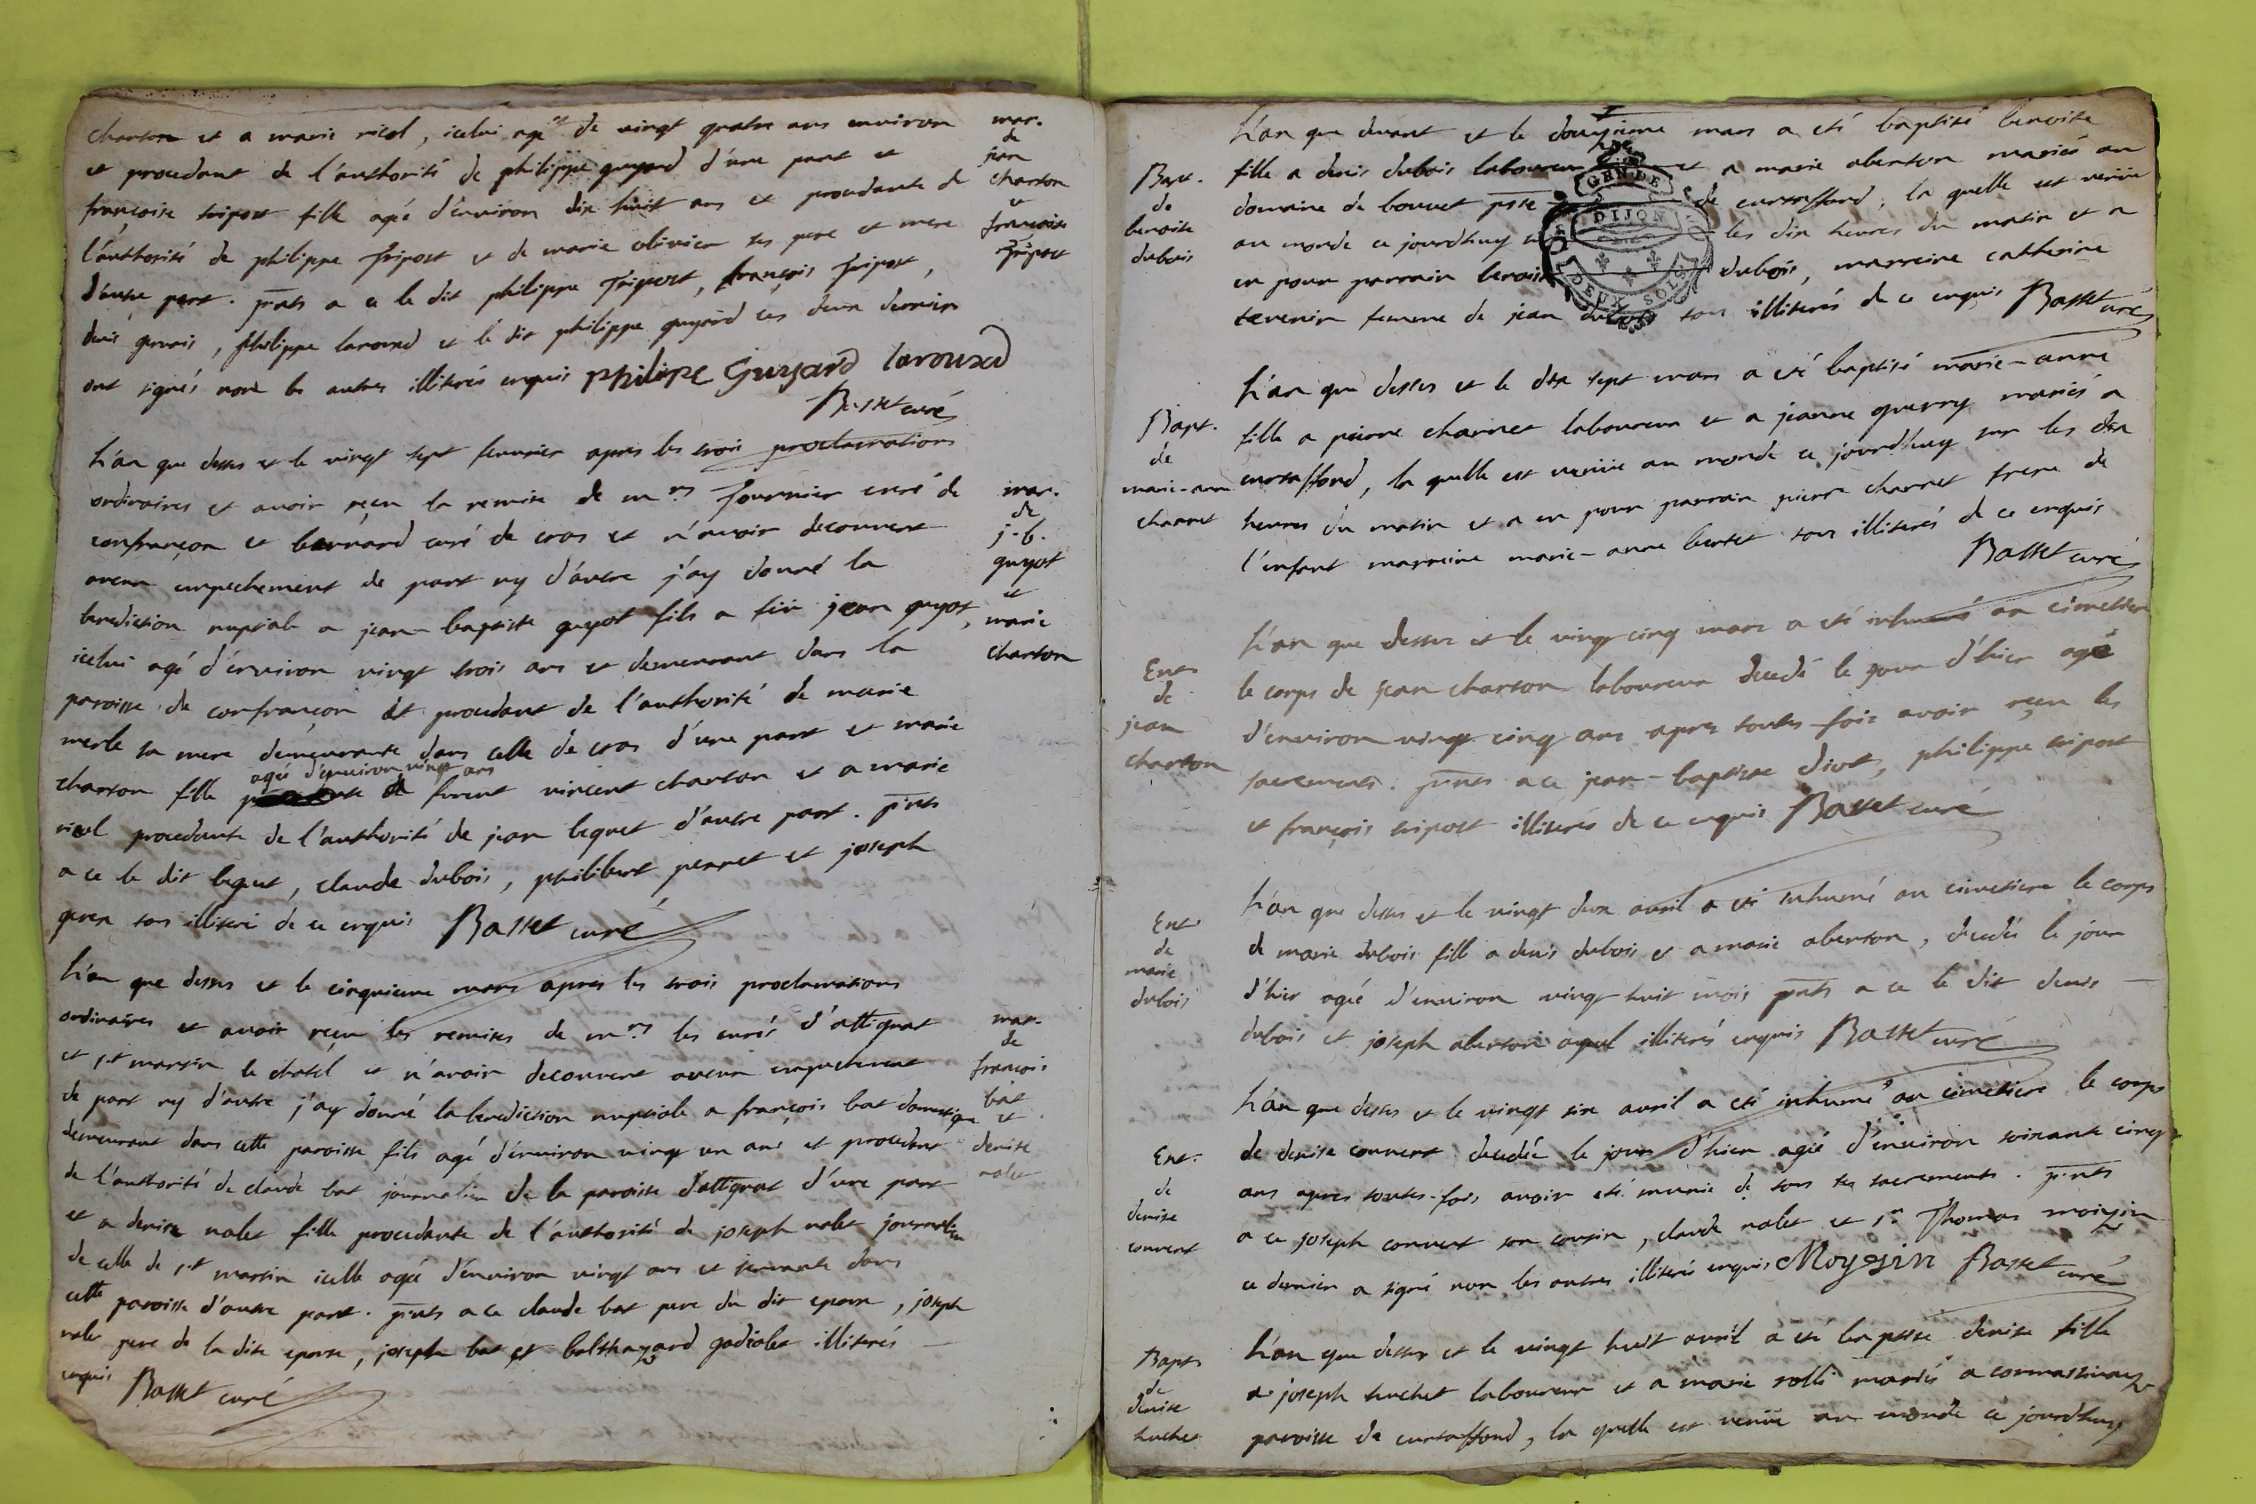 charton et a marie ricol, icelui agé de vingt quatre ans environ
et procedant de l'authorité de philippe guyard d'une part et
françoise tripost fille agée d'environ dix huit ans et procedante de
l'authorité de philippe Tripost et de marie olivier ses pere et mere
d'autre part. pnts a ce le dit philippe Tripost, françois Tripost,
denis gervais, philippe laround et le dit philippe guyard ces deux derniers
ont signés non les autres illiterés enquis philipe Guyard
Basset curé
mar.
de
jean
charton
et
françoise
Tripost
L'an que dessus et le vingt sept fevrier apres les trois proclamations
ordinaires et avoir reçu la remise de mrs Fournier curé de
confrançon et bernard curé de cras et n'avoir decouvert
aucun empechement de part ny d'autre j'ay donné la
benediction nuptiale a jean-baptiste guyot fils a feu jean guyot,
icelui agé d'environ vingt trois ans et demeurant dans la
paroisse de confrançon et procedant de l'authorité de marie
merle sa mere demeurante dans celle de cras d'une part et marie
agée d'environ vingt ans
charton fille de furent vincent charton et a marie
ricol procedante de l'authorité de jean bequet d'autre part. pnts
a ce le dit bequet, claude dubois, philibert perret et joseph
tous illiteré de ce enquis Basset curé
mar.
de
j.b.
guyot
et
marie
charton
L'an que dessus et le cinquieme mars apres les trois proclamations
ordinaires et avoir reçu les remises de mrs les curés d'attignat
et st martin le chatel et n'avoir decouvert aucun empechement
de part ny d'autre j'ay donné la benediction nuptiale a françois bat domestique
demeurant dans cette paroisse fils agé d'environ vingt un ans et procedant
de l'authorité de claude bat journalier de la paroisse d'attignat d'une part
et a denise nalet fille procedante de l'authorité de joseph nalet journalier
de celle de st martin icelle agée d'environ vingt ans et servante dans
cette paroisse d'autre part. pnts a ce claude bat pere du dit epoux, joseph
nalet pere de la dite epouse, joseph bat et balthazard gadiolet illiterés
enquis Basset curé
mar.
de
françois
bat
et
denise
nalet
L'an que devant et le douzieme mars a eté baptisé benoite
fille a denis dubois laboureur et a marie aberton mariés au
domaine de bouvet psse de curtaffond, la quelle est venüe
au monde ce jourdhuy les dix heures du matin et a
eu pour parrain dubois, marreine catherine
tevenin femme de jean dubois tous illiterés de ce enquis Basset curé
Bapt.
de
benoite
dubois
L'an que dessus et le dix sept mars a eté baptisé marie-anne
fille a pierre charnet laboureur et a jeanne guerry mariés a
curtaffond, la quelle est venüe au monde ce jourdhuy sur les dix
heures du matin et a eu pour parrain pierre charnet frere de
l'enfant marreine marie-anne bertet tous illiterés de ce enquis
Basset curé
Bapt.
de
marie-anne
charnet
L'an que dessus et le vingt cinq mars a eté inhumé au cimetiere
le corps de jean charton laboureur decedé le jour d'hier agé
d'environ vingt cinq ans apres toutes-fois avoir reçu les
sacrements. pnts a ce jean-baptiste divot, philippe tripost
et françois tripost illiterés de ce enquis Basset curé
Ent.
de
jean
charton
L'an que dessus et le vingt deux avril a eté inhumé au cimetiere le corps
de marie dubois fille a denis dubois et a marie aberton, decedée le jour
d'hier agée d'environ vingt huit mois pnts a ce le dit denis
dubois et joseph aberton ayeul illiterés enquis Basset curé
Ent.
de
marie
dubois
L'an que dessus et le vingt six avril a eté inhumé au cimetiere le corps
de denise convert decedée le jour d'hier agée d'environ soixante cinq
ans apres toutes-fois avoir eté munie de tous ses sacrements. pnts
a ce joseph convert son cousin, claude nalet et sr Thomas moizin
ce dernier a signé non les autres illiterés enquis Moyzin Basset curé
Ent.
de
denise
convert
L'an que dessus et le vingt huit avril a eté baptisé denise fille
a joseph huchet laboureur et a marie rolli mariés a
paroisse de curtaffond, la quelle est venüe au monde ce jourdhuy
Bapt.
de
denise
huchet
GEN DE
DIJON
DEUX SOLS